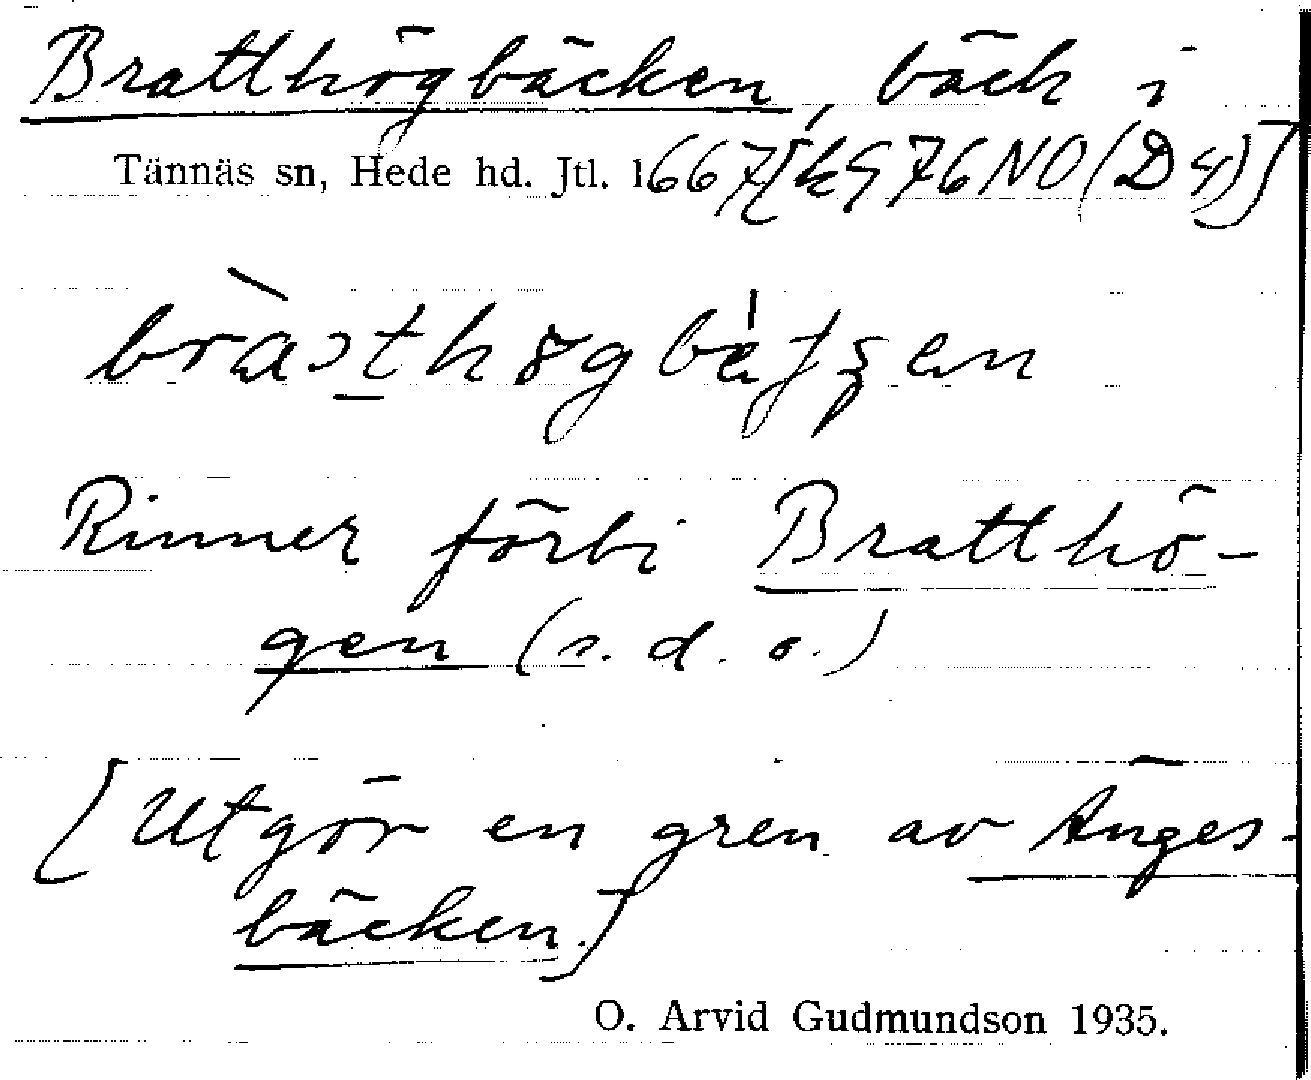 Bratthögbäcken, bäck i
Tännäs sn, Hede hd. Jtl. 1667 [k 976 NO (D4)]
Rinner förbi Bratthö-
gen (s. d. o.)
[Utgör en gren av Änges-
bäcken.]
O. Arvid Gudmundson 1935.